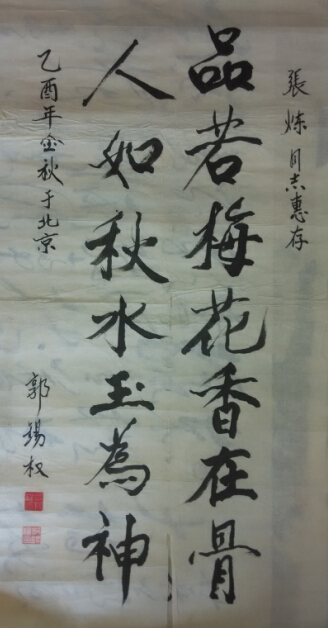 張炼同志惠存
品若梅花香在骨
人如秋水玉為神
乙酉年金秋于北京
郭锡权